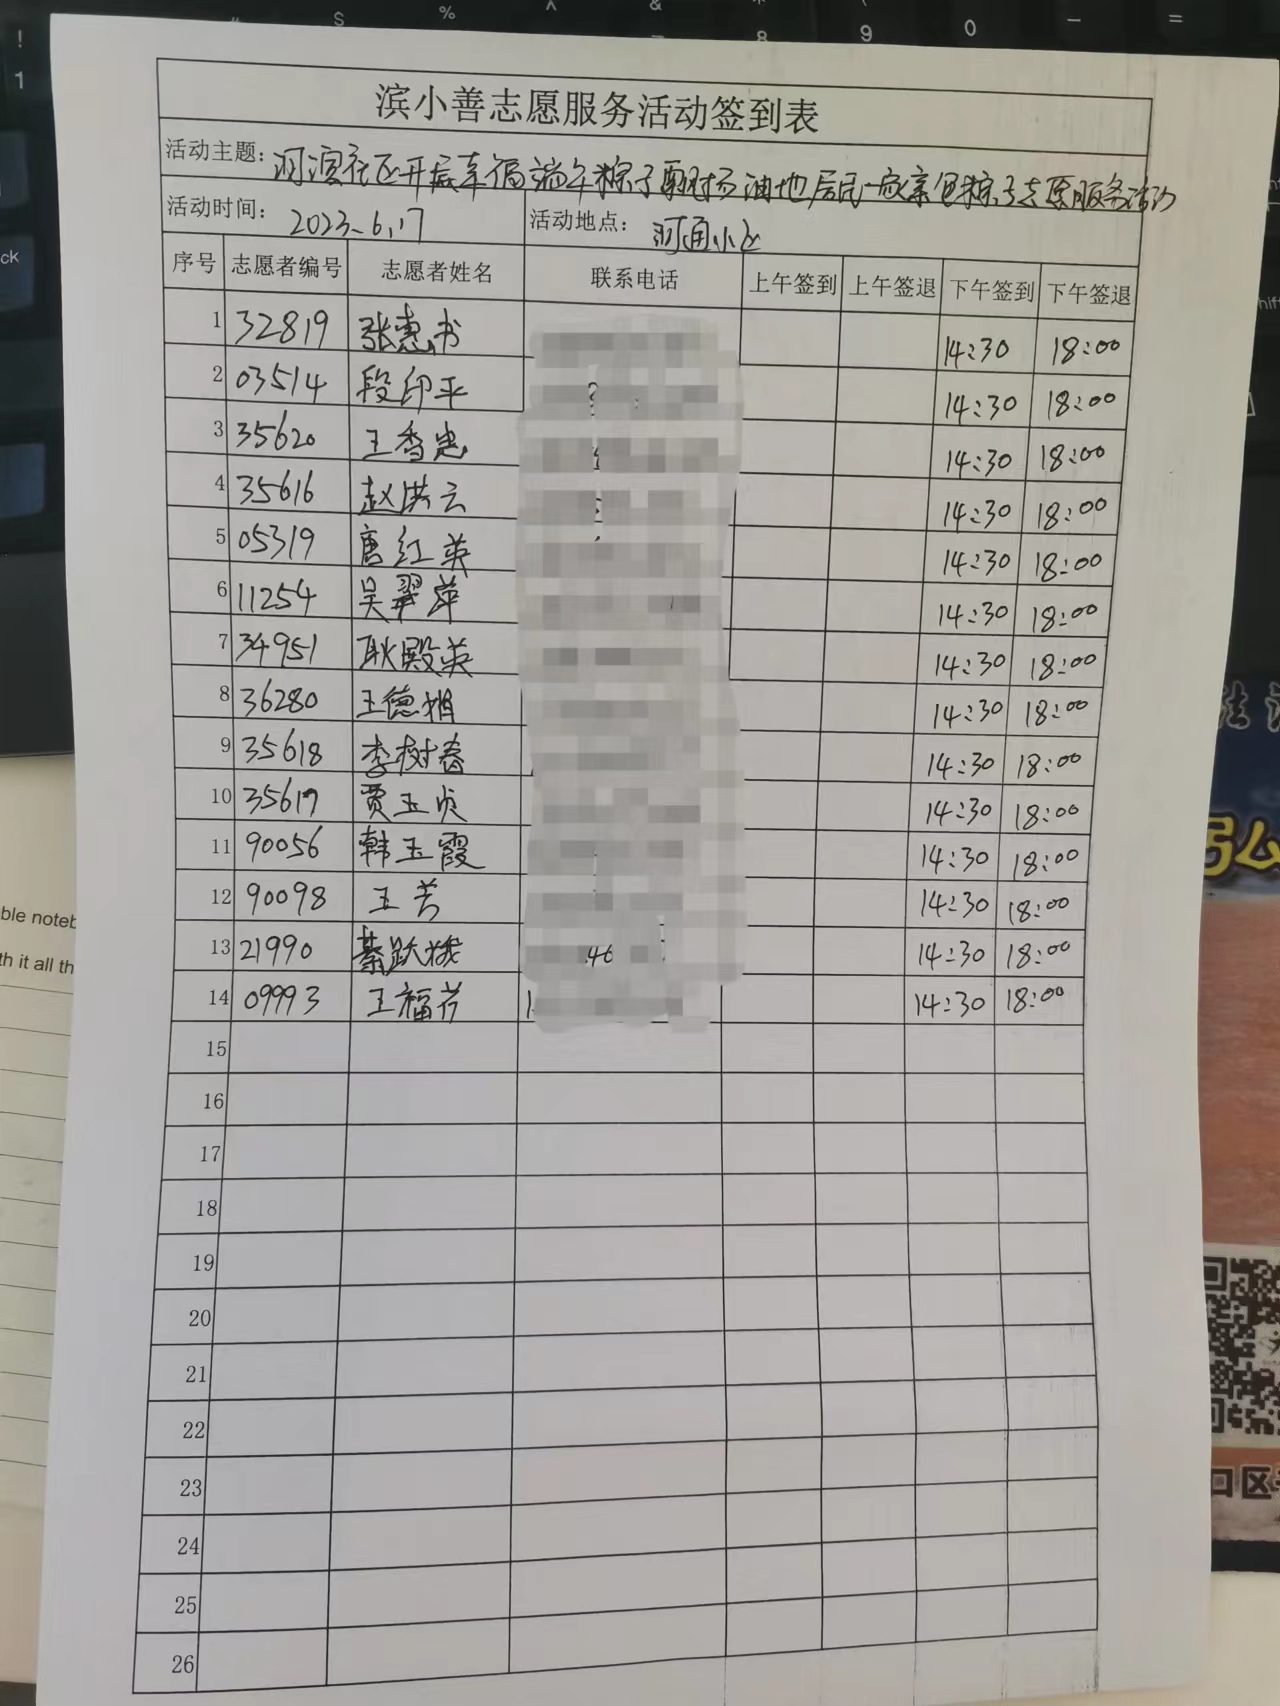 滨小善志愿服务活动签到表
活动主题: 河滨社区开展幸福端午粽子飘香 油地居民一家亲包粽子志愿服务活动
活动时间: 2023.6.17 活动地点: 河通小区
序号 志愿者编号 志愿者姓名 联系电话 上午签到 上午签退 下午签到 下午签退
1 32819 张惠书 14:30 18:00
2 03514 段印平 14:30 18:00
3 35620 王香忠 14:30 18:00
4 35616 赵洪云 14:30 18:00
5 05319 唐红英 14:30 18:00
6 11254 吴翠萍 14:30 18:00
7 34951 耿殿英 14:30 18:00
8 36280 王德娟 14:30 18:00
9 35618 李树春 14:30 18:00
10 35617 贾玉贞 14:30 18:00
11 90056 韩玉霞 14:30 18:00
12 90098 王芳 14:30 18:00
13 21990 綦跃娥 46 14:30 18:00
14 09993 王福芹 1 14:30 18:00
15
16
17
18
19
20
21
22
23
24
25
26
ble noteb
th it all th
口区